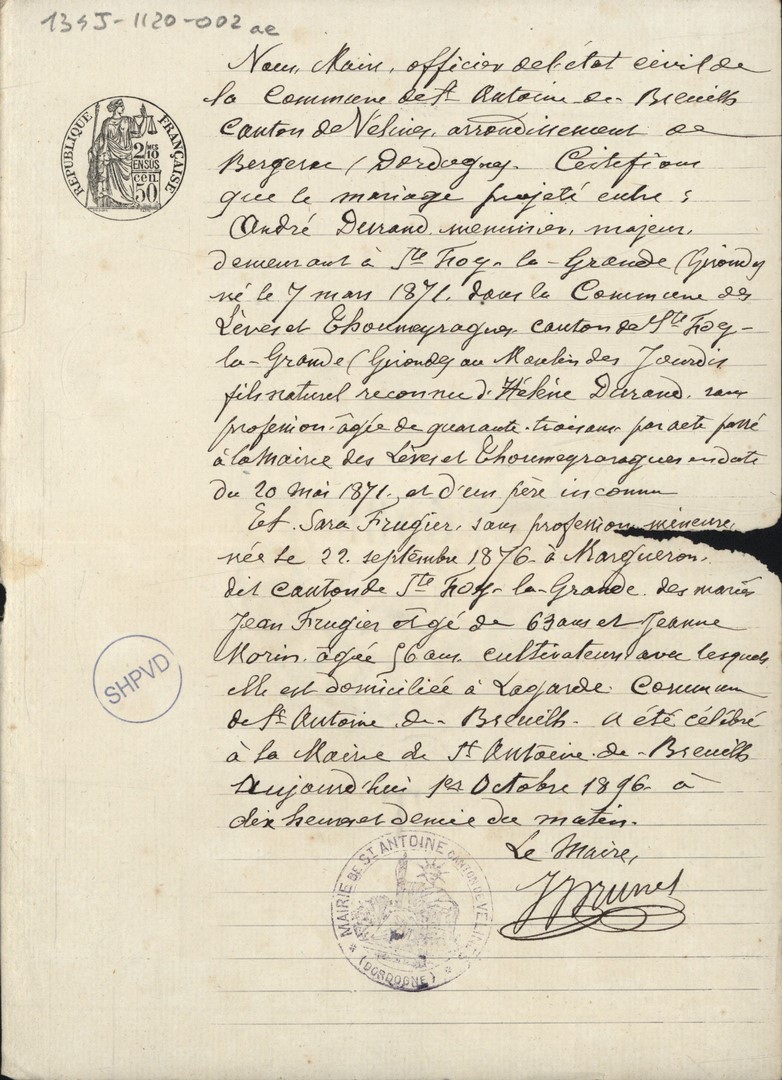 134J-1120-002
ae
RÉPUBLIQUE FRANÇAISE
2/10 MES
EN SUS
cen.
50
Nous, Maire, officier de l'état civil de
la Commune de St Antoine de Breuilh
Canton de Vélines, arrondissement de
Bergerac (Dordogne. Certifions
que le mariage projeté entre :
André Durand, meunier, majeur,
demeurant à Ste Foy-la-Grande (Gironde)
né le 7 mars 1871, dans la Commune des
Lèves et Thoumeyragues canton de Ste Foy-
la-Grande (Gironde) au Moulin des Jourdis
fils naturel reconnu d'Hélène Durand, sans
profession, âgée de quarante-trois ans, par acte passé
à la Mairie des Lèves et Thoumeyragues en date
du 20 mai 1871, et d'un père inconnu
Et Sara Frugier, sans profession, mineure,
née le 22 septembre 1876 à Margueron,
dit canton de Ste Foy-la-Grande des mariés
Jean Frugier âgé de 63 ans et Jeanne
Morin, âgée 56 ans, cultivateurs avec lesquels
elle est domiciliée à Lagarde Commune
de St Antoine de Breuilh. a été célébré
à la Mairie de St Antoine de Breuilh
Aujourd'hui 1er Octobre 1896 à
dix heures et demie du matin.
Le Maire,
J Brunet
SHPVD
MAIRIE DE ST ANTOINE CANTON DE VELINES
* (DORDOGNE) *